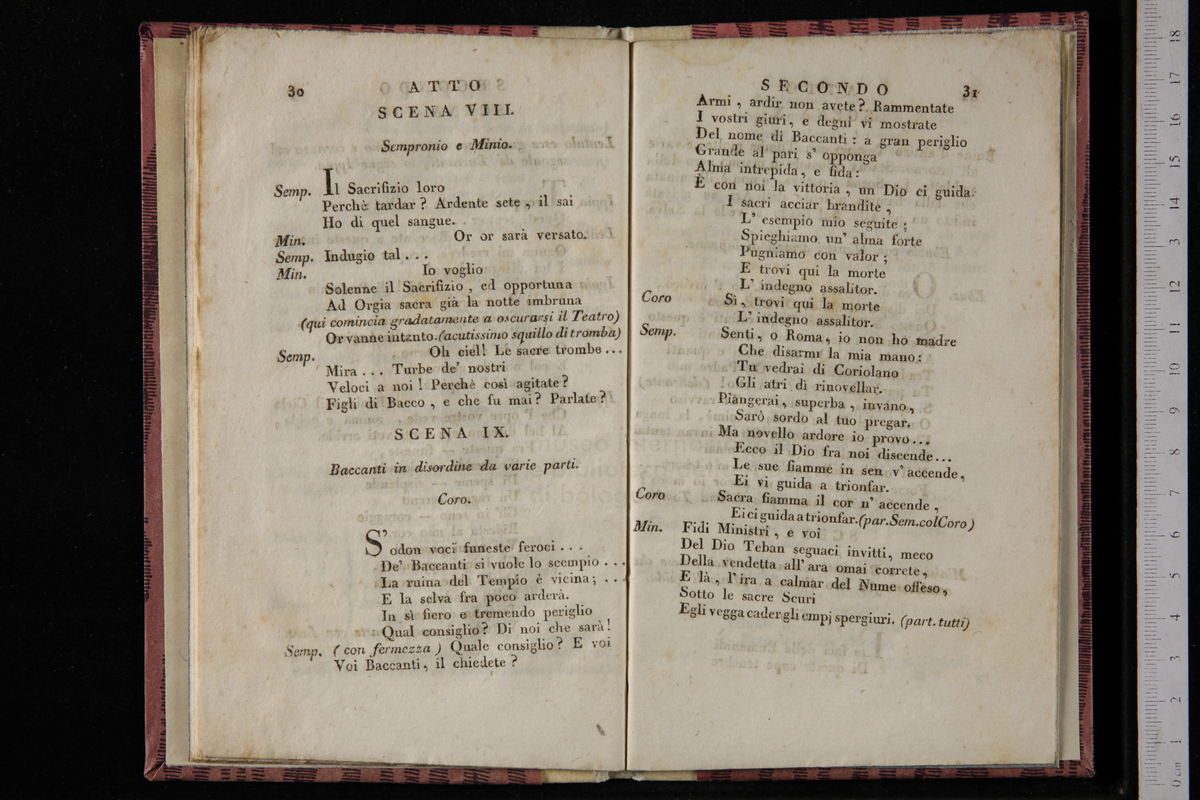 30
ATTO
SCENA VIII.
Sempronio e Minio.
Semp. Il Sacrifizio loro
Perchè tardar? Ardente sete, il sai
Ho di quel sangue.
Min. Or or sarà versato.
Semp. Indugio tal . . .
Min. Io voglio
Solenne il Sacrifizio, ed opportuna
Ad Orgia sacra già la notte imbruna
(qui comincia gradatamente a oscurarsi il Teatro)
Or vanne intanto. (acutissimo squillo di tromba)
Semp. Oh ciel! Le sacre trombe ...
Mira . . . Turbe de' nostri
Veloci a noi! Perchè così agitate?
Figli di Bacco, e che fu mai? Parlate?
SCENA IX.
Baccanti in disordine da varie parti.
Coro.
S'odon voci funeste feroci . . .
De' Baccanti si vuole lo scempio . . .
La ruina del Tempio è vicina; . . .
E la selva fra poco arderà.
In sì fiero e tremendo periglio
Qual consiglio? Di noi che sarà!
Semp. (con fermezza) Quale consiglio? E voi
Voi Baccanti, il chiedete?
SECONDO
31
Armi, ardir non avete? Rammentate
I vostri giuri, e degni vi mostrate
Del nome di Baccanti: a gran periglio
Grande al pari s' opponga
Alma intrepida, e fida:
E con noi la vittoria, un Dio ci guida.
I sacri acciar brandite,
L' esempio mio seguite;
Spieghiamo un' alma forte
Pugniamo con valor;
E trovi qui la morte
L' indegno assalitor.
Coro Sì, trovi qui la morte
L' indegno assalitor.
Semp. Senti, o Roma, io non ho madre
Che disarmi la mia mano:
Tu vedrai di Coriolano
Gli atri dì rinovellar.
Piangerai, superba, invano,
Sarò sordo al tuo pregar.
Ma novello ardore io provo...
Ecco il Dio fra noi discende...
Le sue fiamme in sen v' accende,
Ei vi guida a trionfar.
Coro Sacra fiamma il cor n' accende,
Ei ci guida a trionfar. (par. Sem. col Coro)
Min. Fidi Ministri, e voi
Del Dio Teban seguaci invitti, meco
Della vendetta all' ara omai correte,
E là, l' ira a calmar del Nume offeso,
Sotto le sacre Scuri
Egli vegga cader gli empj spergiuri. (part. tutti)